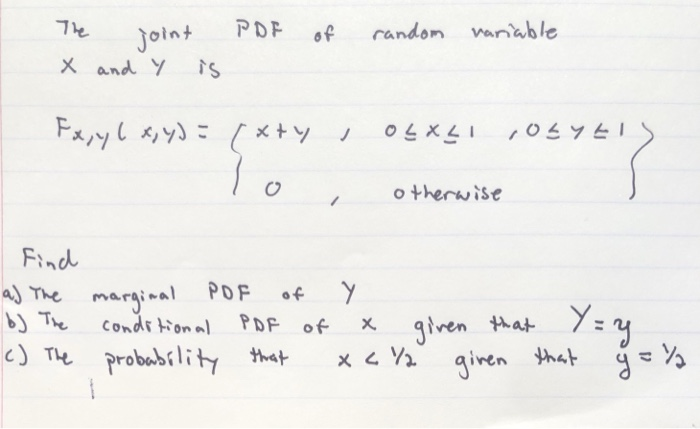 The joint PDF of random variable
X and Y is
Fx,y( x,y) = { x+y , 0≤x≤1 , 0≤y≤1 }
0 , otherwise
Find
a) The marginal PDF of Y
b) The conditional PDF of x given that Y=y
c) The probability that x < 1/2 given that y = 1/2